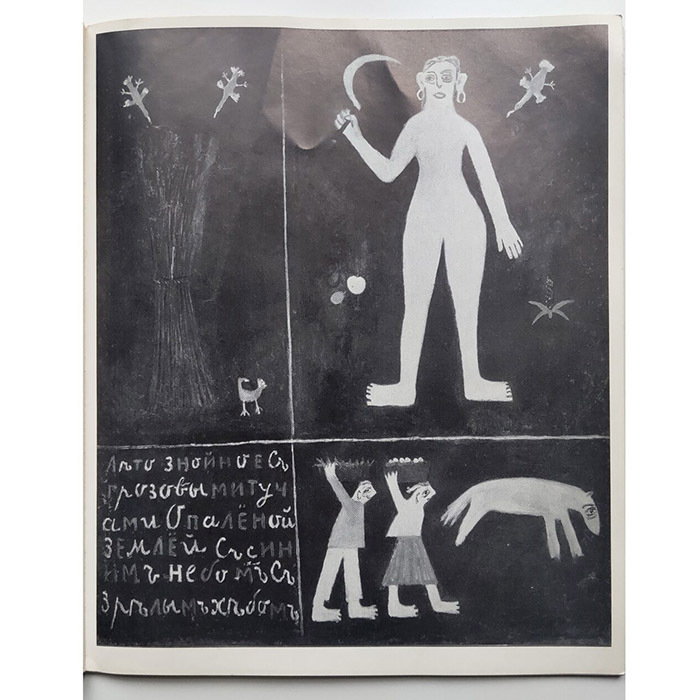 Лѣто знойное съ
грозовыми туч
ами Опалёной
землёй съ син
имъ небомъ съ
зрѣлымъ хѣбомъ